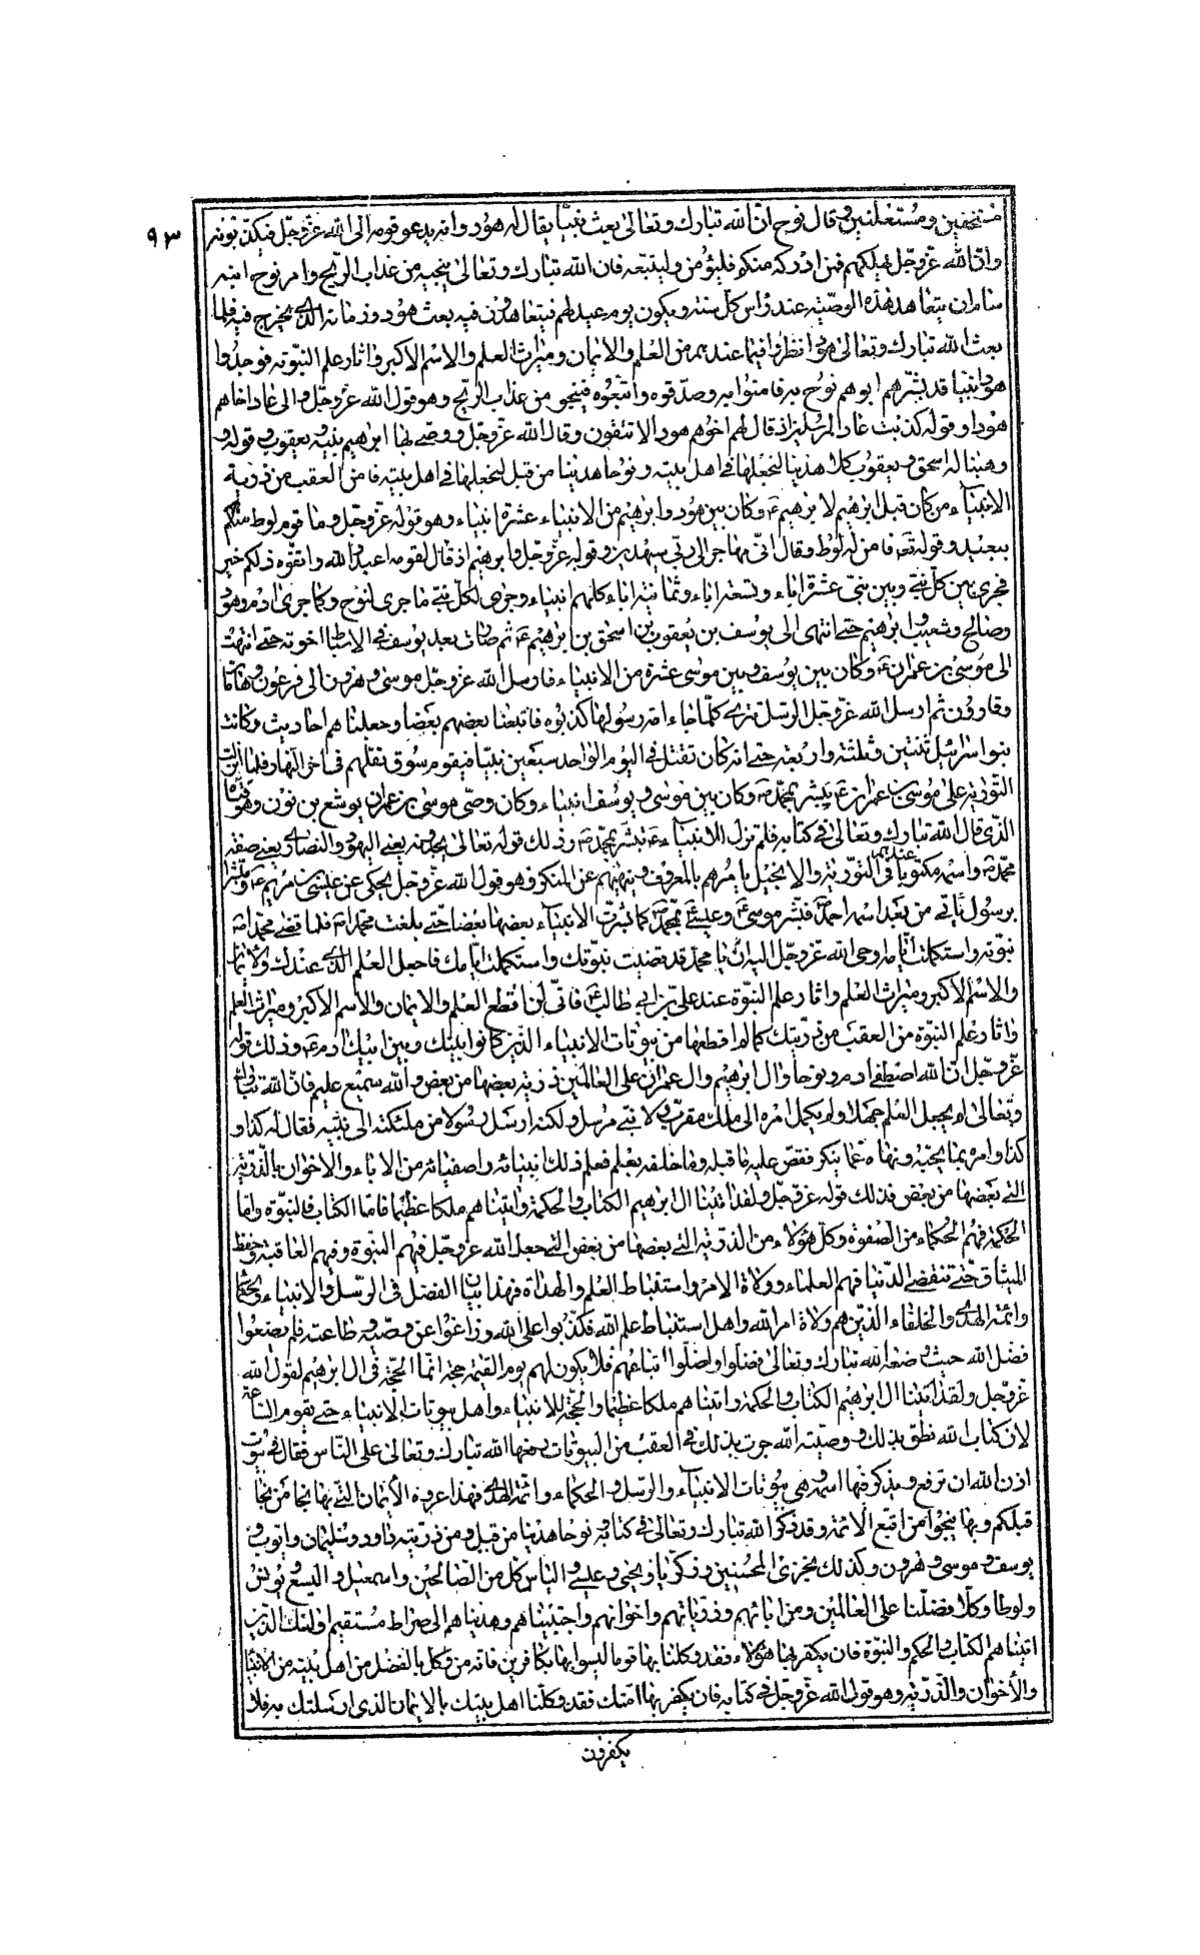 ٩٣
مستخفين ومستعلنين وقال نوح ان الله تبارك وتعالى يبعث نبيا يقال له هود وانه يدعو قومه الى الله عز وجل فيكذبونه
وان الله عز وجل يهلكهم فمن ادركه منكم فليؤمن وليتبعه فان الله تبارك وتعالى ينجيه من عذاب الريح وامر نوح ابنه
سام ان يتعاهد هذه الوصية عند راس كل سنة ويكون يوم عيد لهم فيتعاهدون فيه بعث هود وزمانه الذى يخرج فيه فلما
بعث الله تبارك وتعالى هودا نظروا فيما عندهم من العلم والايمان وميراث العلم والاسم الاكبر واثار علم النبوة فوجدوا
هودا نبيا قد بشرهم ابوهم نوح به فامنوا به وصدقوه واتبعوه فينجو من عذاب الريح وهو قول الله عز وجل والى عاد اخاهم
هودا وقوله كذبت عاد المرسلين اذ قال لهم اخوهم هود الا تتقون وقال الله عز وجل ووصى بها ابرهيم بنيه ويعقوب وقوله و
وهبنا له اسحق ويعقوب كلا هدينا لنجعلها فى اهل بيته ونوحا هدينا من قبل لنجعلها فى اهل بيته فامن العقب من ذرية
الانبياء من كان قبل ابرهيم لابرهيم ع وكان بين هود وابرهيم من الانبياء عشرة انبياء وهو قوله عز وجل وما قوم لوط منكم
ببعيد وقوله تع فامن له لوط وقال انى مهاجر الى ربى سيهدين وقوله عز وجل وابرهيم اذ قال لقومه اعبدوا الله واتقوه ذلكم خير
فجرى بين كل نبى وبين نبى عشرة اباء وتسعة اباء وثمانية اباء كلهم انبياء وجرى لكل نبى ما جرى لنوح وكما جرى لادم وهود
وصالح وشعيب وابرهيم حتى انتهى الى يوسف بن يعقوب بن اسحق بن ابرهيم ع ثم صارت بعد يوسف فى الاسباط اخوته حتى انتهت
الى موسى بن عمران ع وكان بين يوسف وبين موسى عشرة من الانبياء فارسل الله عز وجل موسى وهرون الى فرعون وهامان
وقارون ثم ارسل الله عز وجل الرسل تترى كلما جاء امة رسولها كذبوه فاتبعنا بعضهم بعضا وجعلناهم احاديث وكانت
بنو اسرائيل تقتل نبيين وثلثة واربعة حتى انه كان تقتل فى اليوم الواحد سبعين نبيا فيقوم سوق بقلهم فى اخر النهار فلما انزلت
التورية على موسى بن عمران ع تبشر بمحمد ص وكان بين موسى ويوسف انبياء وكان وصى موسى بن عمران يوشع بن نون وهو فتاه
الذى قال الله تبارك وتعالى فى كتابه فلم تزل الانبياء ع تبشر بمحمد ص وذلك قوله تعالى يجدونه يعنى اليهود والنصارى يعنى صفة
محمد ص واسمه مكتوبا عندهم فى التورية والانجيل يامرهم بالمعروف وينهيهم عن المنكر وهو قول الله عز وجل يحكى عن عيسى بن مريم ع ومبشرا
برسول ياتى من بعدى اسمه احمد فبشر موسى ع وعيسى ع بمحمد ص كما بشرت الانبياء بعضها بعضا حتى بلغت محمدا ص فلما قضى محمد ص
نبوته واستكملت ايامه اوحى الله عز وجل اليه ان يا محمد قد قضيت نبوتك واستكملت ايامك فاجعل العلم الذى عندك والايمان
والاسم الاكبر وميراث العلم واثار علم النبوة عند على بن ابى طالب ع فانى لن اقطع العلم والايمان والاسم الاكبر وميراث العلم
واثار علم النبوة من العقب من ذريتك كما لم اقطعها من بيوتات الانبياء الذين كانوا بينك وبين ابيك ادم ع وذلك قوله
عز وجل ان الله اصطفى ادم ونوحا وال ابرهيم وال عمران على العالمين ذرية بعضها من بعض والله سميع عليم فان الله تبارك
وتعالى لم يجعل العلم جهلا ولم يكل امره الى ملك مقرب ولا نبى مرسل ولكنه ارسل رسولا من ملئكته الى نبيه فقال له كذا و
كذا وامره بما يحبه ونهاه عما ينكر فقص عليه ما قبله وما خلفه بعلم فعلم ذلك انبيائه واصفيائه من الاباء والاخوان بالذرية
التى بعضها من بعض فذلك قوله عز وجل ولقد اتينا ال ابرهيم الكتاب والحكمة واتيناهم ملكا عظيما فاما الكتاب فالنبوة واما
الحكمة فهم الحكماء من الصفوة وكل هؤلاء من الذرية التى بعضها من بعض التى جعل الله عز وجل فيهم النبوة وفيهم العاقبة وحفظ
الميثاق حتى تنقضى الدنيا فهم العلماء وولاة الامر واستنباط العلم والهداة فهذا بيان الفضل فى الرسل والانبياء والحكما
وائمة الهدى والخلفاء الذين هم ولاة امر الله واهل استنباط علم الله فكذبوا على الله وزاغوا عن وصيته وطاعته فلم يضعوا
فضل الله حيث وضعه الله تبارك وتعالى فضلوا واضلوا اتباعهم فلا يكون لهم يوم القيمة حجة انما الحجة فى ال ابرهيم لقول الله
عز وجل ولقد اتينا ال ابرهيم الكتاب والحكمة واتيناهم ملكا عظيما والحجة للانبياء واهل بيوتات الانبياء حتى تقوم الساعة
لان كتاب الله نطق بذلك ووصية الله جرت بذلك فى العقب من البيوتات رفعها الله تبارك وتعالى على الناس فقال فى بيوت
اذن الله ان ترفع ويذكر فيها اسمه وهى بيوتات الانبياء والرسل والحكماء وائمة الهدى فهذا عروة الايمان التى بها نجا من نجا
قبلكم وبها ينجوا من اتبع الائمة وقد ذكر الله تبارك وتعالى فى كتابه نوحا هدينا من قبل ومن ذريته داود وسليمان وايوب و
يوسف وموسى وهرون وكذلك نجزى المحسنين وزكريا ويحيى وعيسى والياس كل من الصالحين واسمعيل واليسع ويونس
ولوطا وكلا فضلنا على العالمين ومن ابائهم وذرياتهم واخوانهم واجتبيناهم وهديناهم الى صراط مستقيم اولئك الذين
اتيناهم الكتاب والحكم والنبوة فان يكفر بها هؤلاء فقد وكلنا بها قوما ليسوا بها بكافرين فانه من وكل بالفضل من اهل بيته من الانبيا
والاخوان والذرية وهو قول الله عز وجل فى كتابه فان يكفر بها امتك فقد وكلنا اهل بيتك بالايمان الذى ارسلتك به فلا
يكفرون